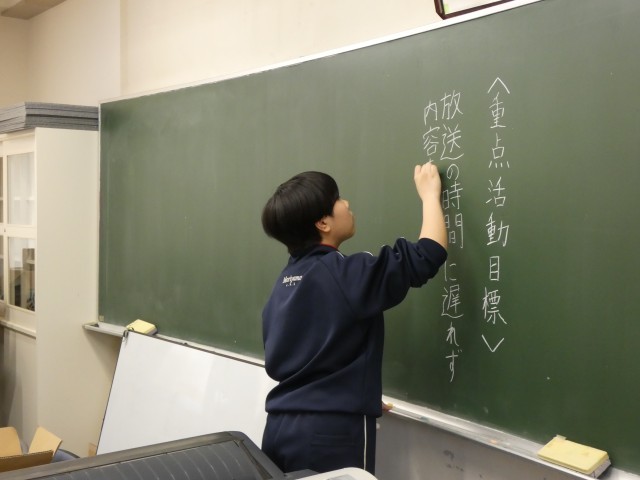 〈重点活動目標〉
放送の時間に遅れず
内容
Moriyama